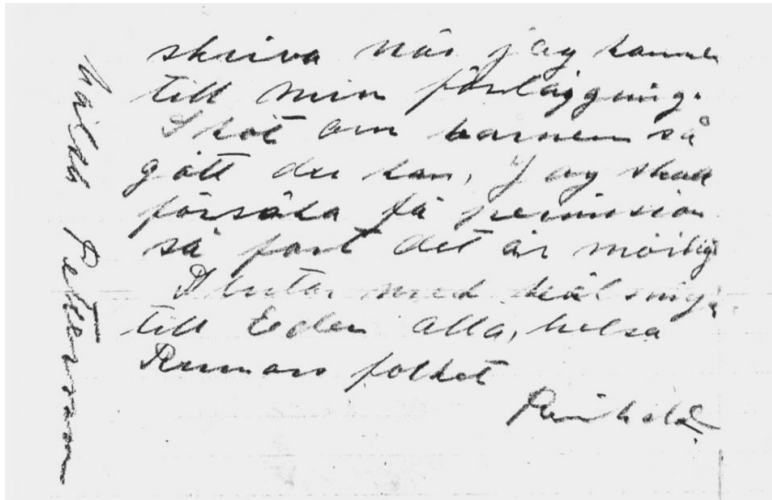 skriva när jag kommer
till min förläggning.
Sköt om barnen så
gott du kan, Jag skall
försöka få permission
så fort det är möjligt
Slutar med hälsning
till Eder alla, helsa
folket
Reinhold.
hälsa Pettersson